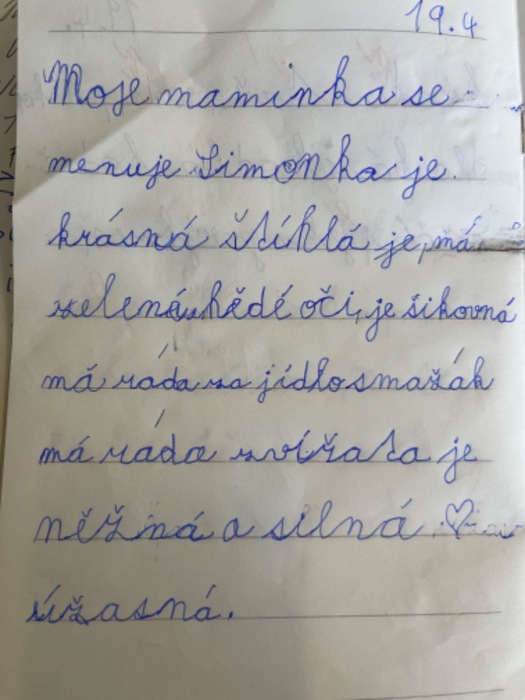 19.4
Moje maminka se
menuje Simonka je
krásná štíhlá je, má
zelená hědé oči, je šikovná
má ráda za jídlo smažák
má ráda zvířata je
něžná a silná ♡
úžasná.